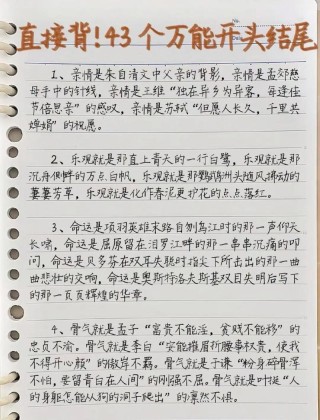 直接背！43个万能开头结尾
1、亲情是朱自清文中父亲的背影，亲情是孟郊慈
母手中的针线，亲情是王维“独在异乡为异客，每逢佳
节倍思亲”的感叹，亲情是苏轼“但愿人长久，千里共
婵娟”的祝愿。
2、乐观就是那直上青天的一行白鹭，乐观就是那
沉舟侧畔的万点白帆，乐观就是那鹦鹉洲头随风拂动的
萋萋芳草，乐观就是化作春泥更护花的点点落红。
3、命这是项羽英雄末路自刎乌江时的那一声仰天
长啸，命这是屈原留在汨罗江畔的那一串串沉痛的叩
问，命这是贝多芬在双耳失聪时指尖下所击出的那一曲
曲悲壮的交响，命这是奥斯特洛夫斯基双目失明后写下
的那一页页辉煌的华章。
4、骨气就是孟子“富贵不能淫，贫贱不能移”的
忠贞不渝。骨气就是李白“安能摧眉折腰事权贵，使我
不得开心颜”的傲岸不羁。骨气就是于谦“粉身碎骨浑
不怕，要留青白在人间”的刚强不屈。骨气就是叶挺“人
的身躯怎能从狗的洞子爬出”的凛然不惧。